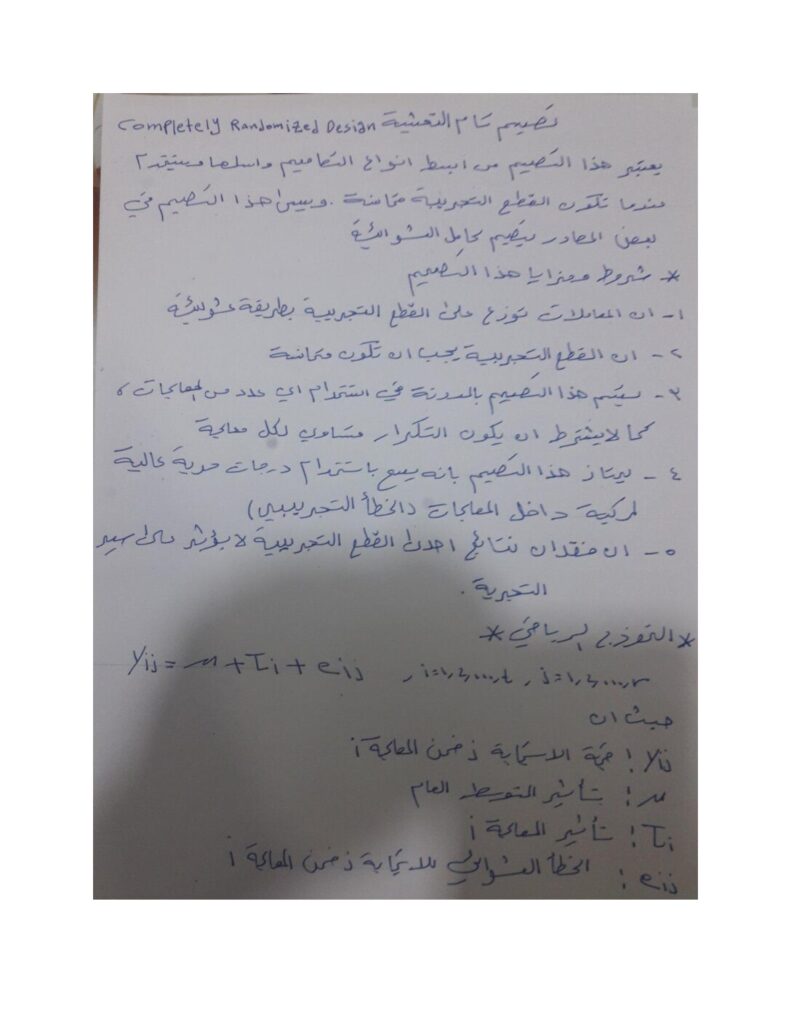 تصميم تام التعشية Completely Randomized Design
يعتبر هذا التصميم من ابسط انواع التصاميم واسهلها ويستخدم
عندما تكون القطع التجريبية متماثلة . ويسمى هذا التصميم في
بعض المصادر بتصميم كامل العشوائية
* شروط ومزايا هذا التصميم
١- ان المعاملات توزع على القطع التجريبية بطريقة عشوائية
٢- ان القطع التجريبية يجب ان تكون متماثلة
٣- يتسم هذا التصميم بالمرونة في استخدام اي عدد من المعالجات ،
كما لا يشترط ان يكون التكرار متساوي لكل معالجة
٤- يمتاز هذا التصميم بانه يسمح باستخدام درجات حرية عالية
لمركبة داخل المعالجات (الخطأ التجريبي)
٥- ان فقدان نتائج احدى القطع التجريبية لا يؤثر على سير
التجربة .
* النموذج الرياضي *
yij = μ + τi + eij , i=1,2,...,t , j=1,2,...,r
حيث ان
yij : قيمة الاستجابة j ضمن المعالجة i
μ : تأثير المتوسط العام
τi : تأثير المعالجة i
eij : الخطأ العشوائي للاستجابة j ضمن المعالجة i